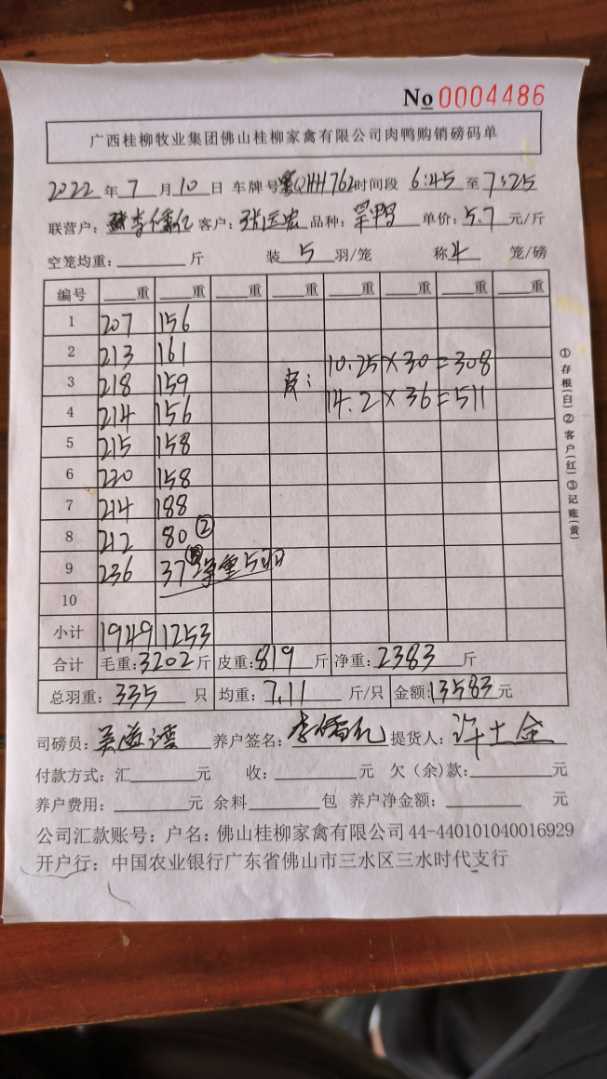 No 0004486
广西桂柳牧业集团佛山桂柳家禽有限公司肉鸭购销磅码单
2022 年 7 月 10 日 车牌号 762 时间段 6:45 至 7:25
联营户: 客户: 品种: 单价: 5.7 元/斤
空笼均重: 斤 装 5 羽/笼 称 4 笼/磅
编号 重 重 重 重 重 重 重 重
1 207 156
2 213 161 10.25×30=308
3 218 159 皮:
4 214 156 14.2×36=511
5 215 158
6 220 158
7 214 188
8 212 80 ②
9 236 37 净重5羽
10
小计 1949 1253
合计 毛重:3202 斤 皮重:819 斤 净重:2383 斤
总羽重: 335 只 均重: 7.11 斤/只 金额:13583 元
司磅员: 养户签名: 提货人: 许士金
付款方式: 汇 元 收: 元 欠(余)款: 元
养户费用: 元 余料 包 养户净金额: 元
公司汇款账号: 户名: 佛山桂柳家禽有限公司 44-440101040016929
开户行: 中国农业银行广东省佛山市三水区三水时代支行
①存根(白)②客户(红)③记账(黄)